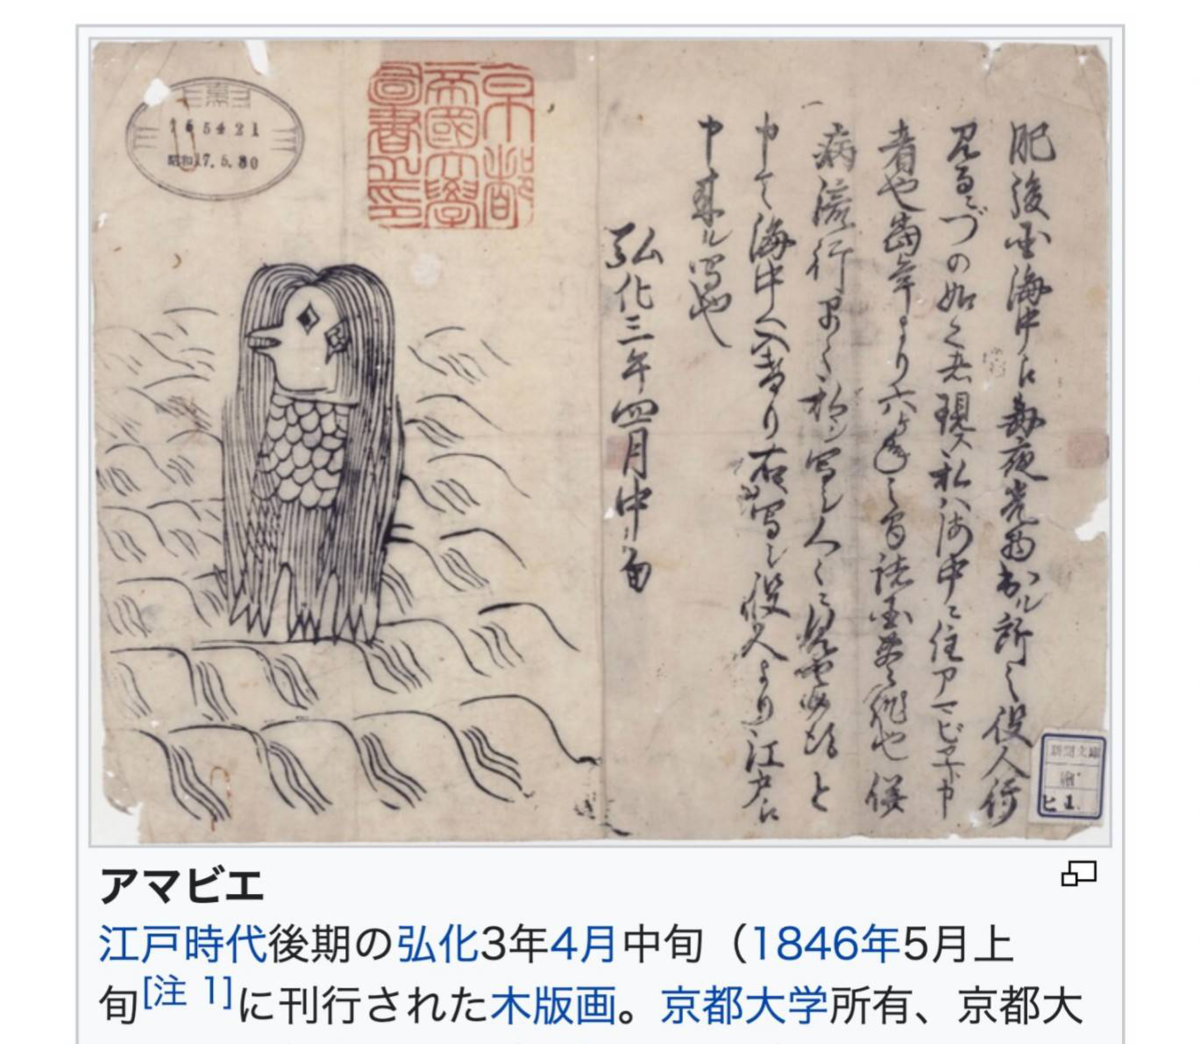 肥後国海中え毎夜光物出ル所之役人行
見るニづの如く者現ス私ハ海中ニ住アマビヱト申
者也当年より六ヶ年之間諸国豊作也併
病流行早々私シ写シ人々ニ見せ候得と
申て海中へ入けり右写シ役人より江戸え
申来ル写也
弘化三年四月中旬
京都
帝國大學
圖書之印
165421
昭和17.5.30
新聞文庫
ヒ 1.
アマビエ
江戸時代後期の弘化3年4月中旬（1846年5月上
旬[注 1]に刊行された木版画。京都大学所有、京都大